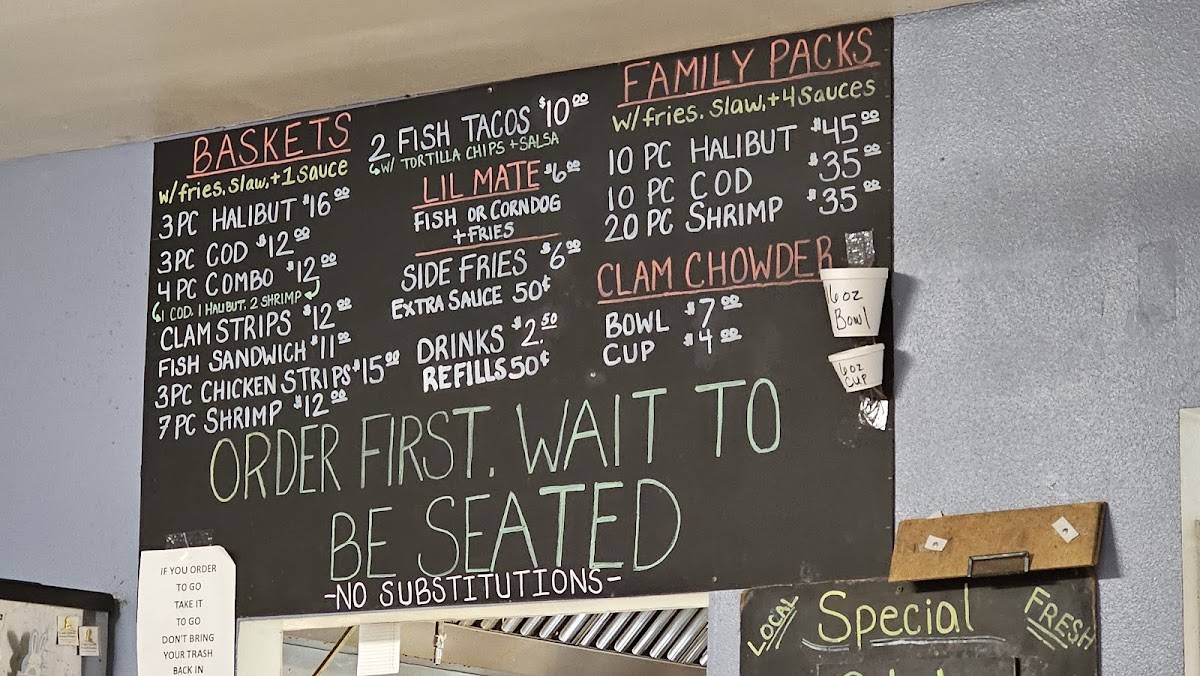 BASKETS
w/fries, slaw, + 1 sauce
3 PC HALIBUT $16.00
3 PC COD $12.00
4 PC COMBO $12.00
1 COD, 1 HALIBUT, 2 SHRIMP
CLAM STRIPS $12.00
FISH SANDWICH $11.00
3 PC CHICKEN STRIPS $15.00
7 PC SHRIMP $12.00
2 FISH TACOS $10.00
W/ TORTILLA CHIPS + SALSA
LIL MATE $6.00
FISH OR CORNDOG
+ FRIES
SIDE FRIES $6.00
EXTRA SAUCE 50¢
DRINKS $2.50
REFILLS 50¢
FAMILY PACKS
w/fries, slaw, + 4 sauces
10 PC HALIBUT $45.00
10 PC COD $35.00
20 PC SHRIMP $35.00
CLAM CHOWDER
BOWL $7.00
CUP $4.00
Bowl
6oz
CUP
ORDER FIRST. WAIT TO
BE SEATED
-NO SUBSTITUTIONS-
IF YOU ORDER
TO GO
TAKE IT
TO GO
DON'T BRING
YOUR TRASH
BACK IN
LOCAL
Special
FRESH